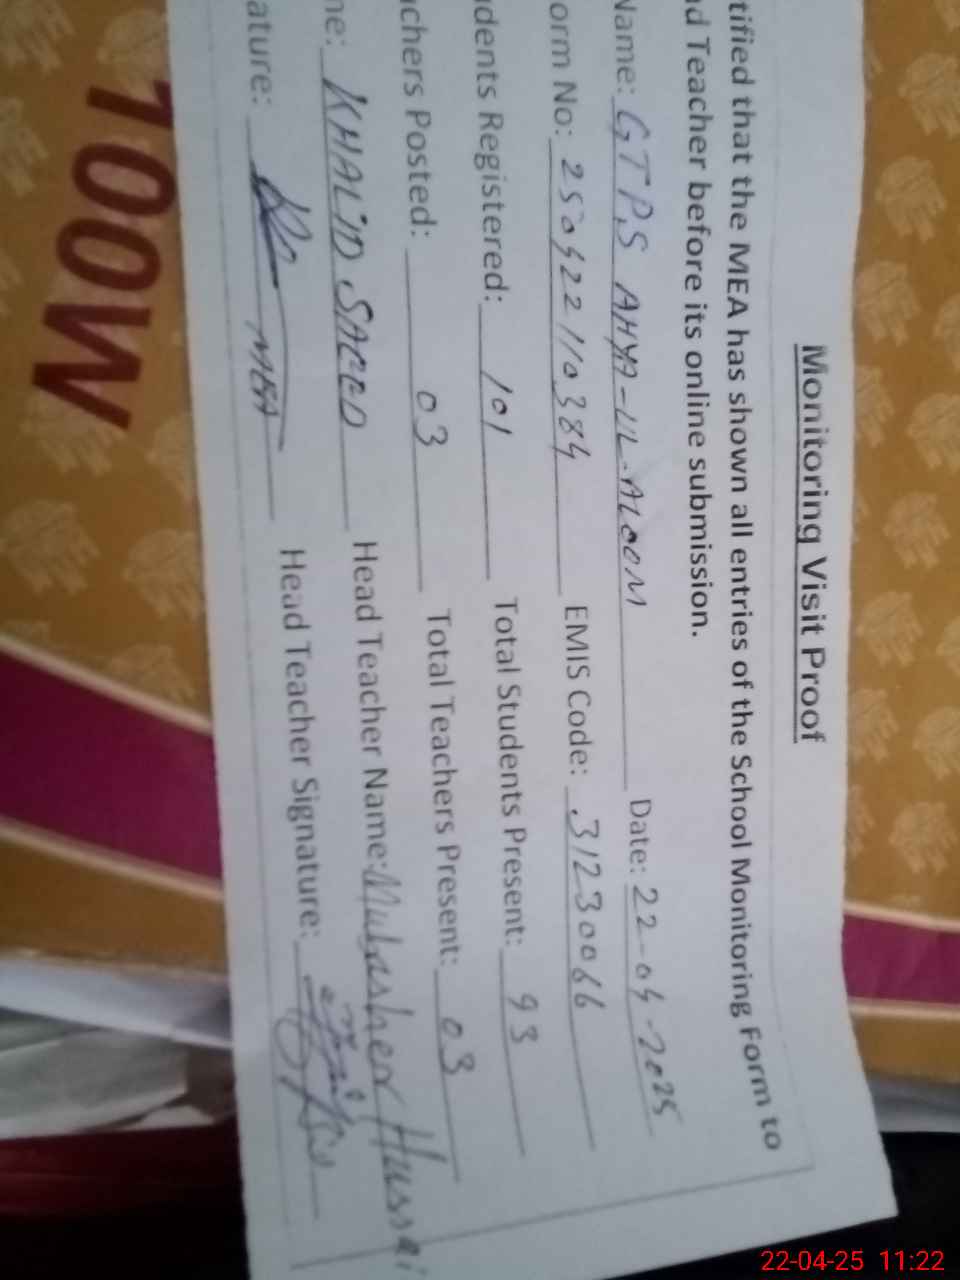 Monitoring Visit Proof
tified that the MEA has shown all entries of the School Monitoring Form to
d Teacher before its online submission.
Name: GTPS AHYA-UL-ALOOM Date: 22-04-2025
orm No: 250422110384 EMIS Code: 31230066
dents Registered: 101 Total Students Present: 93
chers Posted: 03 Total Teachers Present: 03
ne: KHALID SAEED Head Teacher Name: Mubasher Hussai
ature: MEA Head Teacher Signature:
100W
22-04-25 11:22